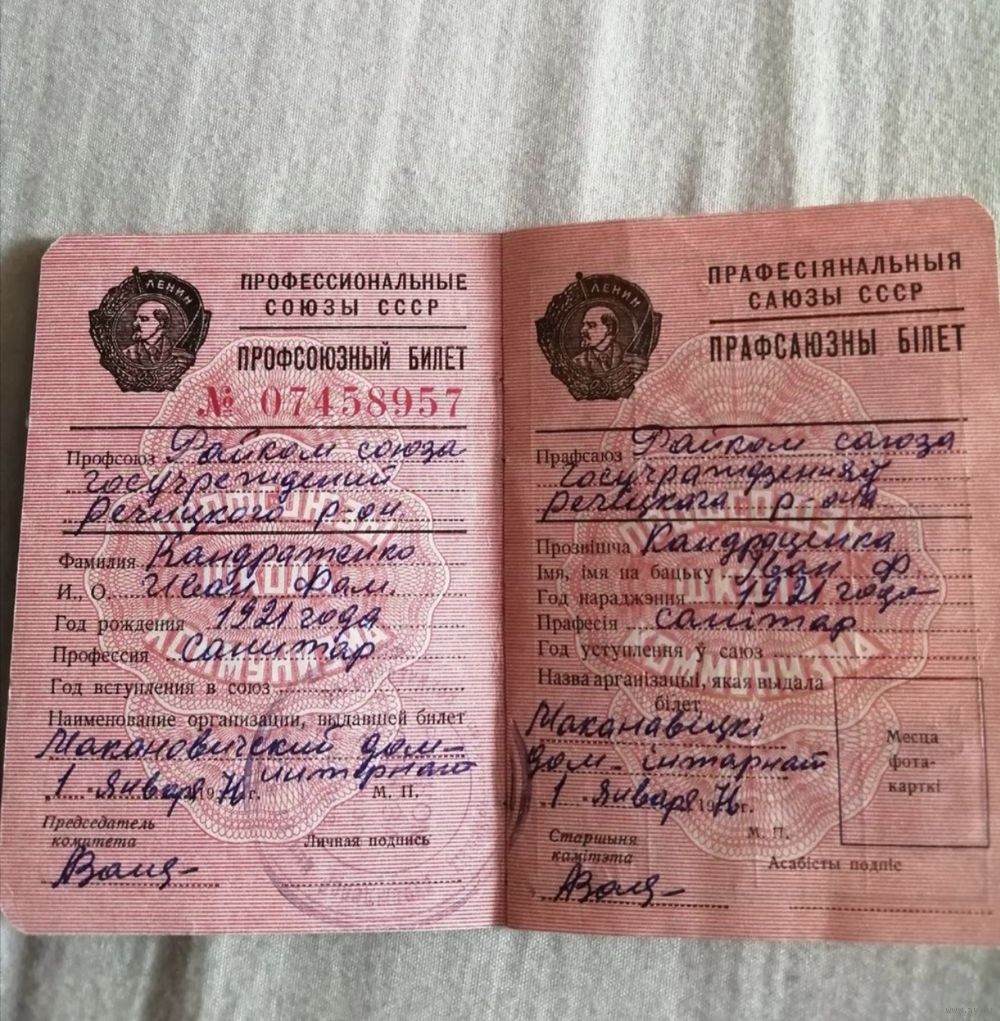 ЛЕНИН
ПРОФЕССИОНАЛЬНЫЕ
СОЮЗЫ СССР
ПРОФСОЮЗНЫЙ БИЛЕТ
№ 07458957
Профсоюз Райком союза
госучреждений
Речицкого р-он
Фамилия Кандратенко
И., О. Иван Фам.
Год рождения 1921 года
Профессия санитар
Год вступления в союз
Наименование организации, выдавшей билет
Макановический дом-
интернат
1 Января 1976 г.
М. П.
Председатель
комитета
Личная подпись
ЛЕНИН
ПРАФЕСІЯНАЛЬНЫЯ
САЮЗЫ СССР
ПРАФСАЮЗНЫ БІЛЕТ
Прафсаюз Райком саюза
госучраждзенняў
Речицкага р-она
Прозвішча Кандраценка
Імя, імя на бацьку Іван Ф
Год нараджэння 1921 года
Прафесія санітар
Год уступлення ў саюз
Назва арганізацыі, якая выдала
білет
Маканавіцкі
дом-інтарнат
1 Января 1976 г.
М. П.
Месца
фота-
карткі
Старшыня
камітэта
Асабісты подпіс